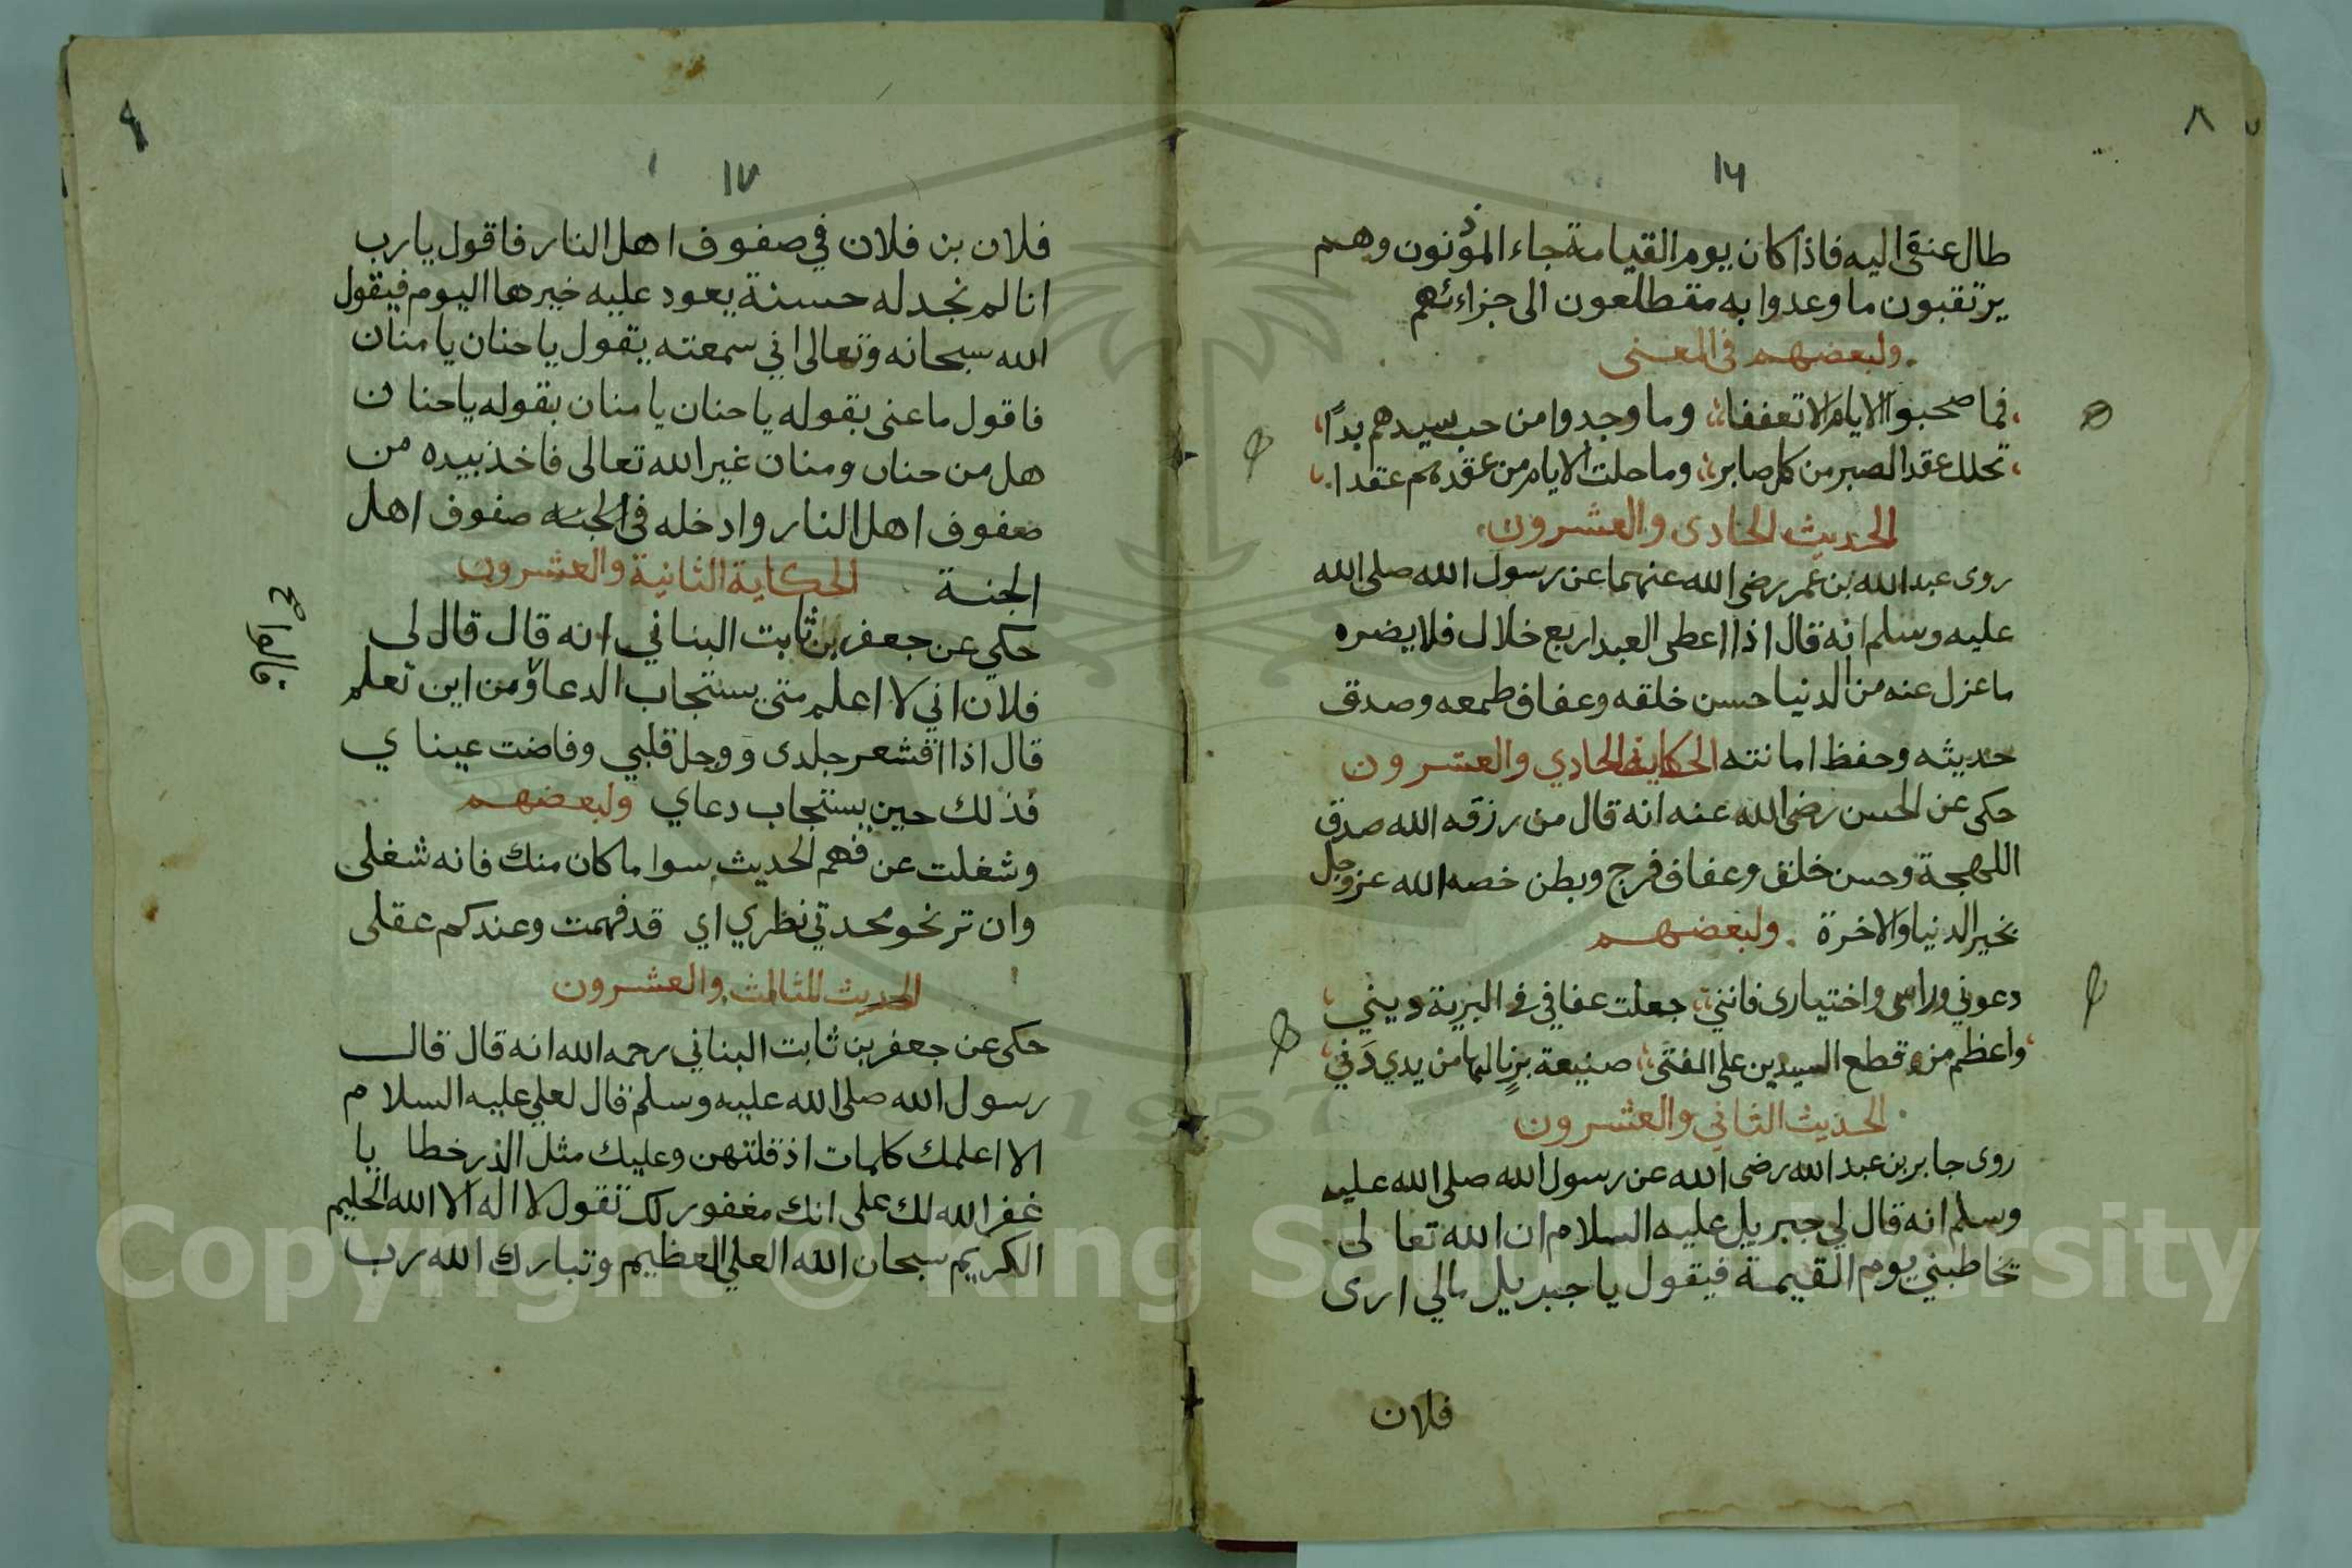 ٨
١٦
طال عنقى اليه فاذا كان يوم القيامة جاء المؤذنون وهم
يرتقبون ما وعدوا به متطلعون الى جزاءئهم
ولبعضهم فى المعنى
فما صحبوا الايام الا تعففا وما وجدوا من حب سيدهم بدًا
تحلل عقد الصبر من كل صابر وما حلت الايام من عقدهم عقدا
الحديث الحادى والعشرون
روى عبد الله بن عمر رضى الله عنهما عن رسول الله صلى الله
عليه وسلم انه قال اذا اعطى العبد اربع خلال فلا يضره
ما عزل عنه من الدنيا حسن خلقه وعفاف طمعه وصدق
حديثه وحفظ امانته الحكاية الحادي والعشرون
حكى عن الحسن رضى الله عنه انه قال من رزقه الله صدق
اللهجة وحسن خلق وعفاف فرج وبطن خصه الله عز وجل
بخير الدنيا والاخرة ولبعضهم
دعوني وراسى واختيارى فانني جعلت عفافي في البرية ديني
واعظم من قطع اليدين على الفتى صنيعة برٍ نالها من يدي دَني
الحديث الثاني والعشرون
روى جابر بن عبد الله رضى الله عن رسول الله صلى الله عليه
وسلم انه قال لي جبريل عليه السلام ان الله تعالى
يخاطبني يوم القيمة فيقول يا جبريل مالي ارى
فلان
٩
١٧
فلان بن فلان في صفوف اهل النار فاقول يارب
انا لم نجد له حسنة يعود عليه خيرها اليوم فيقول
الله سبحانه وتعالى اني سمعته يقول يا حنان يا منان
فاقول ما عنى بقوله يا حنان يا منان بقوله يا حنان
هل من حنان ومنان غير الله تعالى فاخذ بيده من
صفوف اهل النار وادخله فى الجنه صفوف اهل
الجنة الحكاية الثانية والعشرون
حكي عن جعفر بن ثابت البناني انه قال قال لى
فلان اني لا اعلم متى يستجاب الدعاؤ من اين تعلم
قال اذا اقشعر جلدى ووجل قلبي وفاضت عيناي
فذلك حين يستجاب دعاي ولبعضهم
وشغلت عن فهم الحديث سوا ما كان منك فانه شغلى
وان تر نحو محدتي نظري اي قد فهمت وعندكم عقلى
الحديث الثالث والعشرون
حكى عن جعفر بن ثابت البناني رحمه الله انه قال قال
رسول الله صلى الله عليه وسلم قال لعلي عليه السلام
الا اعلمك كلمات اذ قلتهن وعليك مثل الذر خطايا
غفر الله لك على انك مغفور لك تقول لا اله الا الله الحليم
الكريم سبحان الله العلي العظيم وتبارك الله رب
1957
Copyright © King Saud University